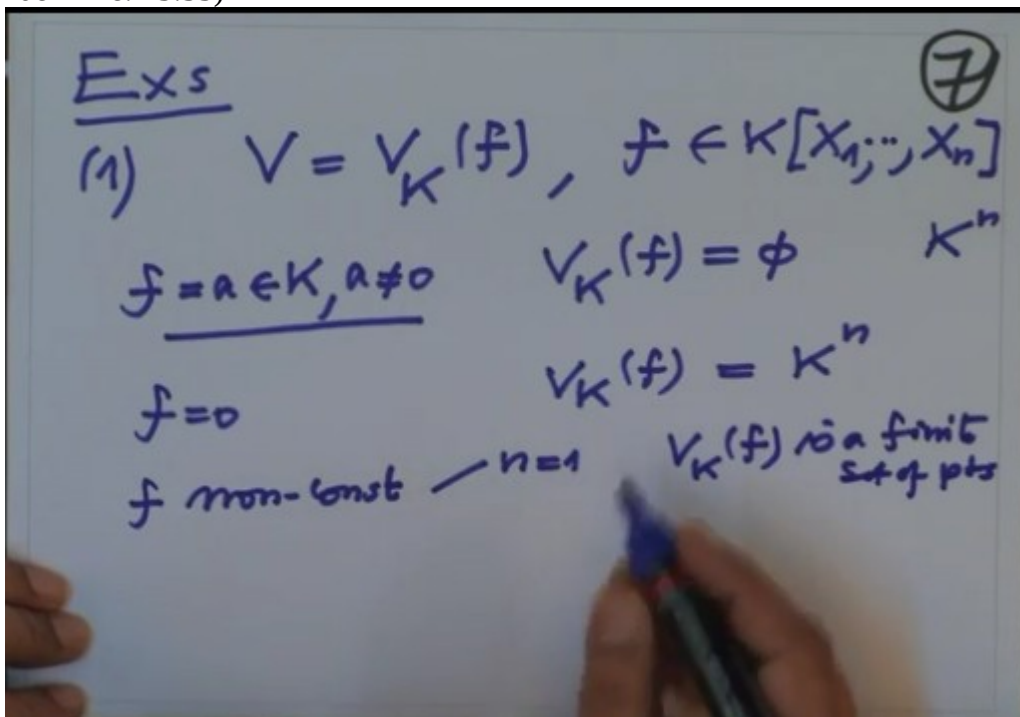 Exs
7
(1) V = V_K(f), f ∈ K[X_1,...,X_n]
f = a ∈ K, a ≠ 0 V_K(f) = ϕ K^n
f = 0 V_K(f) = K^n
f non-const — n=1 V_K(f) is a finit
set of pts